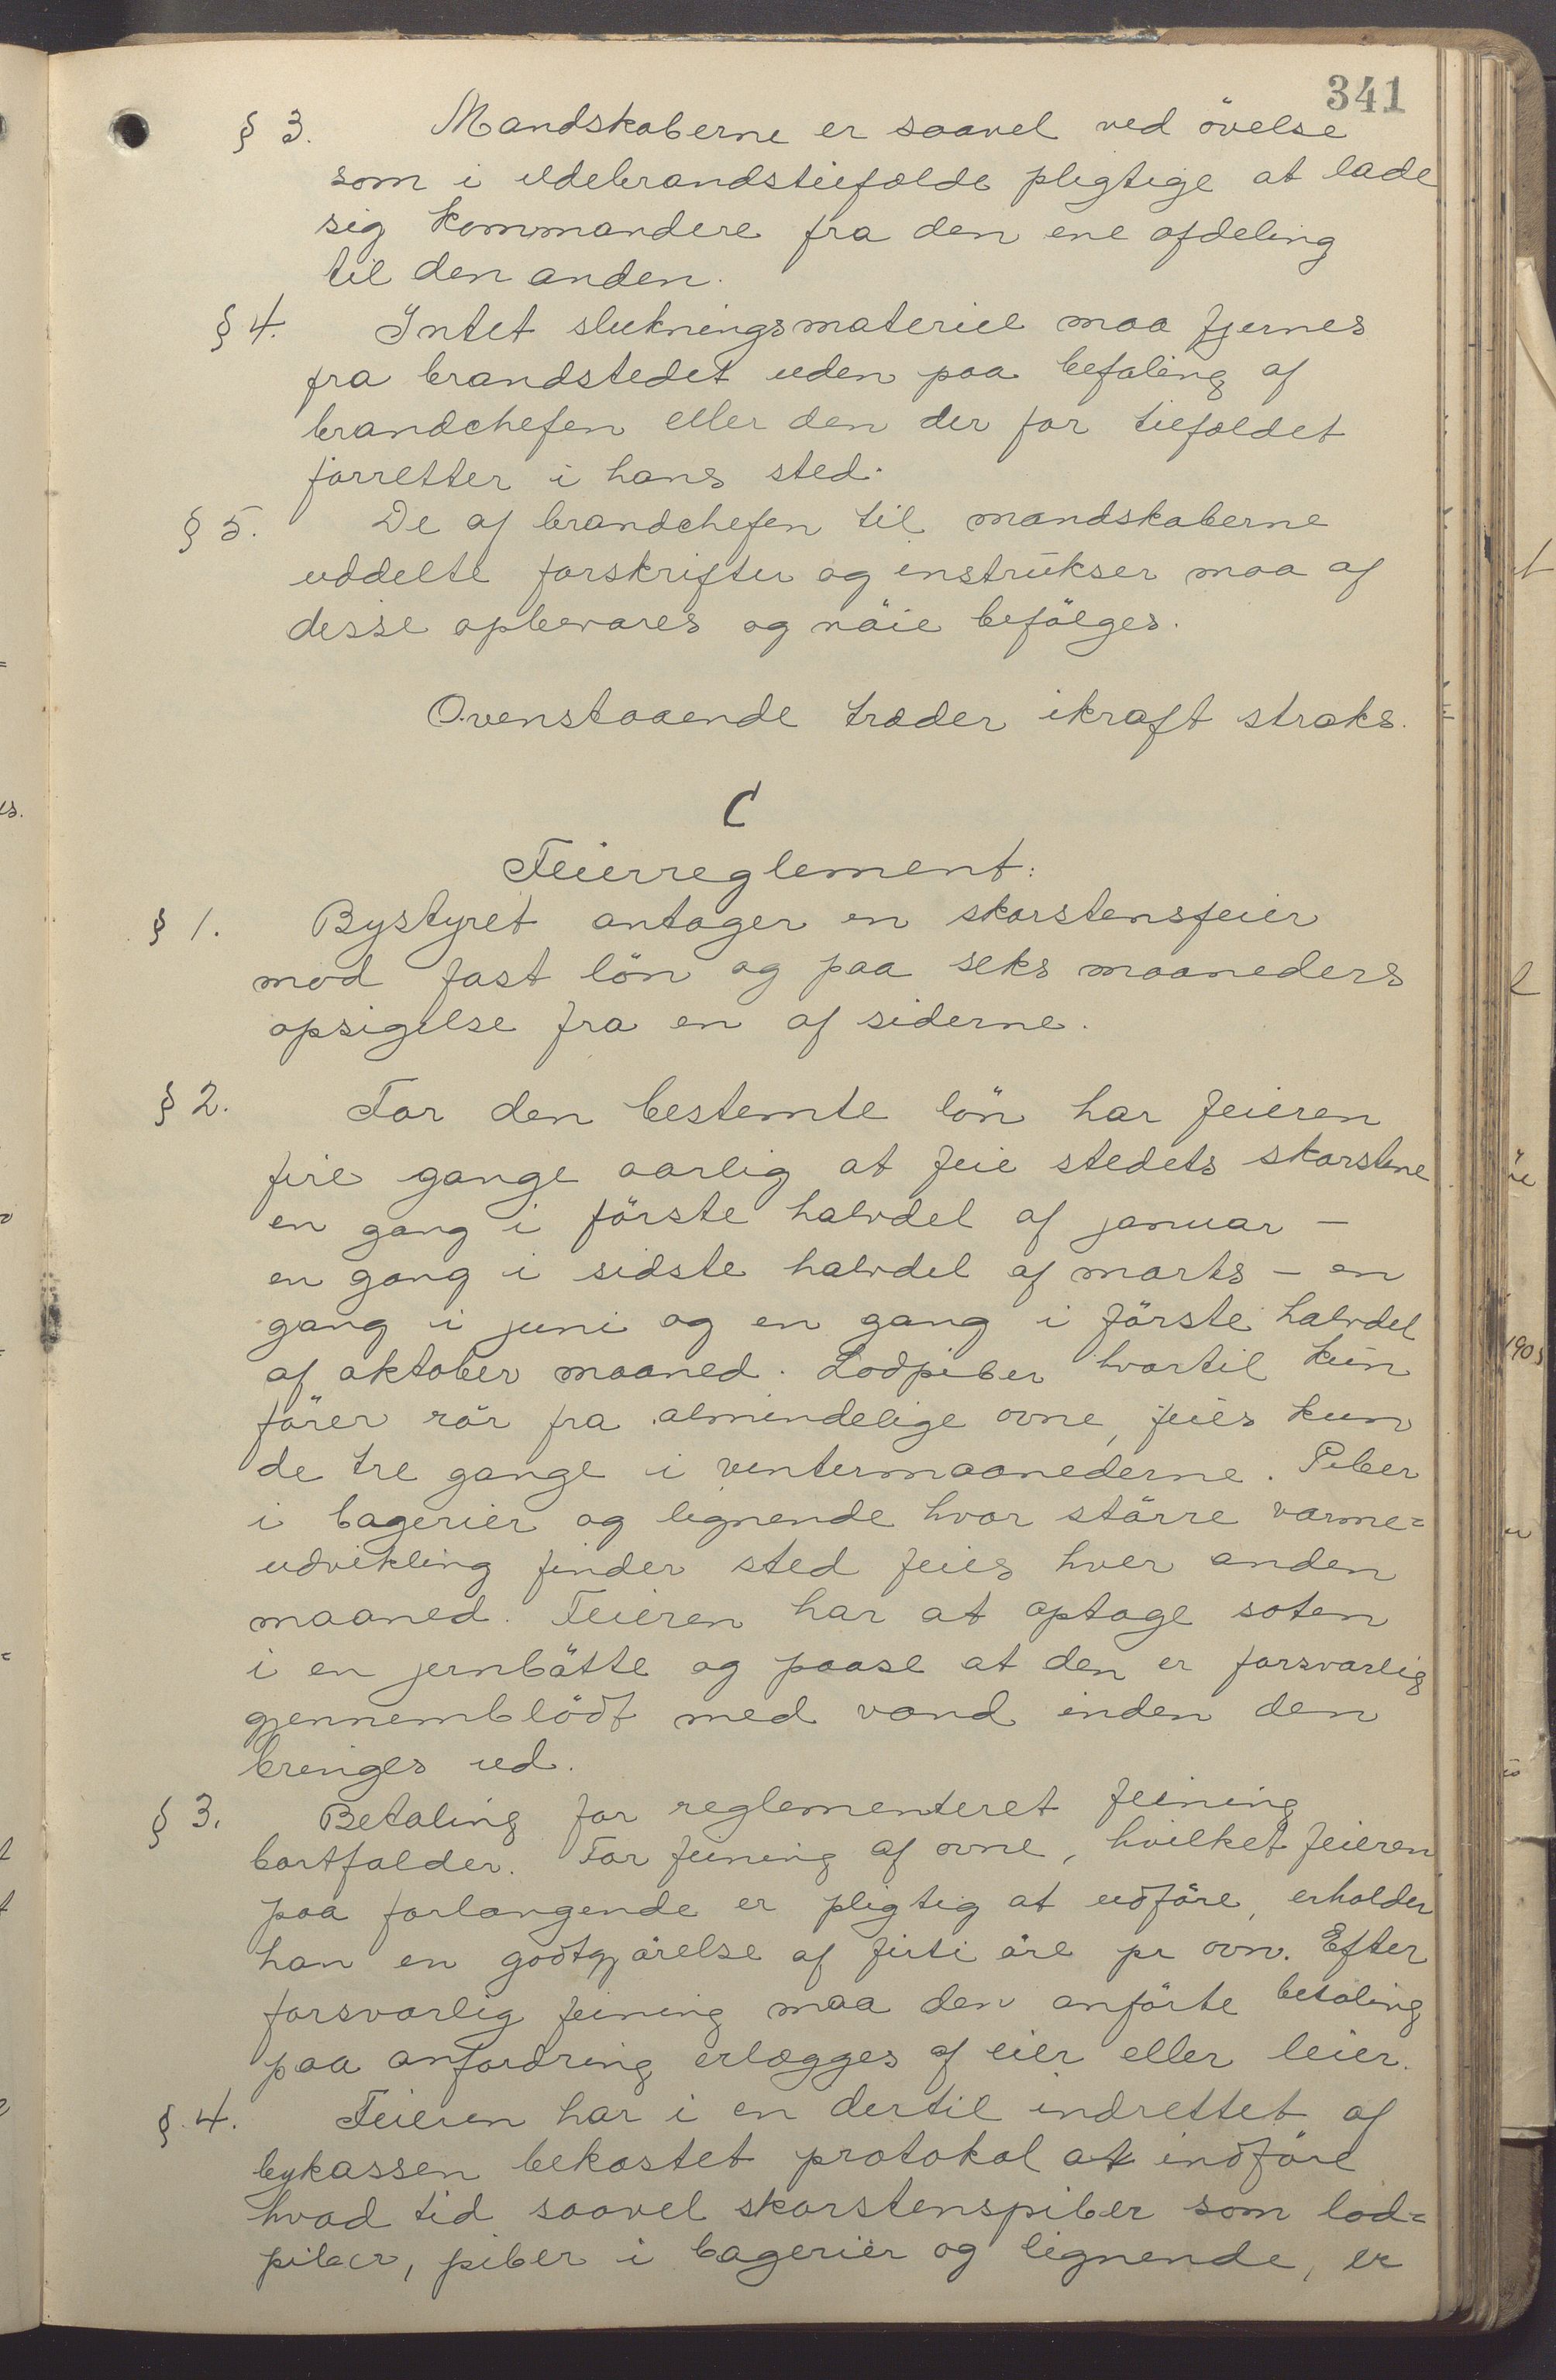 341
§ 3. Mandskaberne er saavel ved övelse
som i ildebrandstilfælde pligtige at lade
sig kommandere fra den ene afdeling
til den anden.
§ 4. Intet slukningsmateriel maa fjernes
fra brandstedet uden paa befaling af
brandchefen eller den der for tilfældet
forretter i hans sted.
§ 5. De af brandchefen til mandskaberne
uddelte forskrifter og instrukser maa af
disse opbevares og nöie befölges.
Ovenstaaende træder ikraft straks.
C
Feierreglement:
§ 1. Bystyret antager en skorstensfeier
mod fast lön og paa seks maaneders
opsigelse fra en af siderne.
§ 2. For den bestemte lön har feieren
fire gange aarlig at feie stedets skorstene
en gang i förste halvdel af januar –
en gang i sidste halvdel af marts – en
gang i juni og en gang i förste halvdel
af oktober maaned. Lodpiber hvortil kun
förer rör fra almindelige ovne, feies kun
de tre gange i vintermaanederne. Piber
i bagerier og lignende hvor större varme=
udvikling finder sted feies hver anden
maaned. Feieren har at optage soten
i en jernbötte og paase at den er forsvarlig
gjennemblödt med vand inden den
bringes ud.
§ 3. Betaling for reglementeret feining
bortfalder. For feining af ovne, hvilket feieren
paa forlangende er pligtig at udföre, erholder
han en godtgjörelse af firti öre pr ovn. Efter
forsvarlig feining maa den anförte betaling
paa anfordring erlægges af eier eller leier.
§. 4. Feieren har i en dertil indrettet af
bykassen bekostet protokol at indföre
hvad tid saavel skorstenspiber som lod=
piber, piber i bagerier og lignende, er